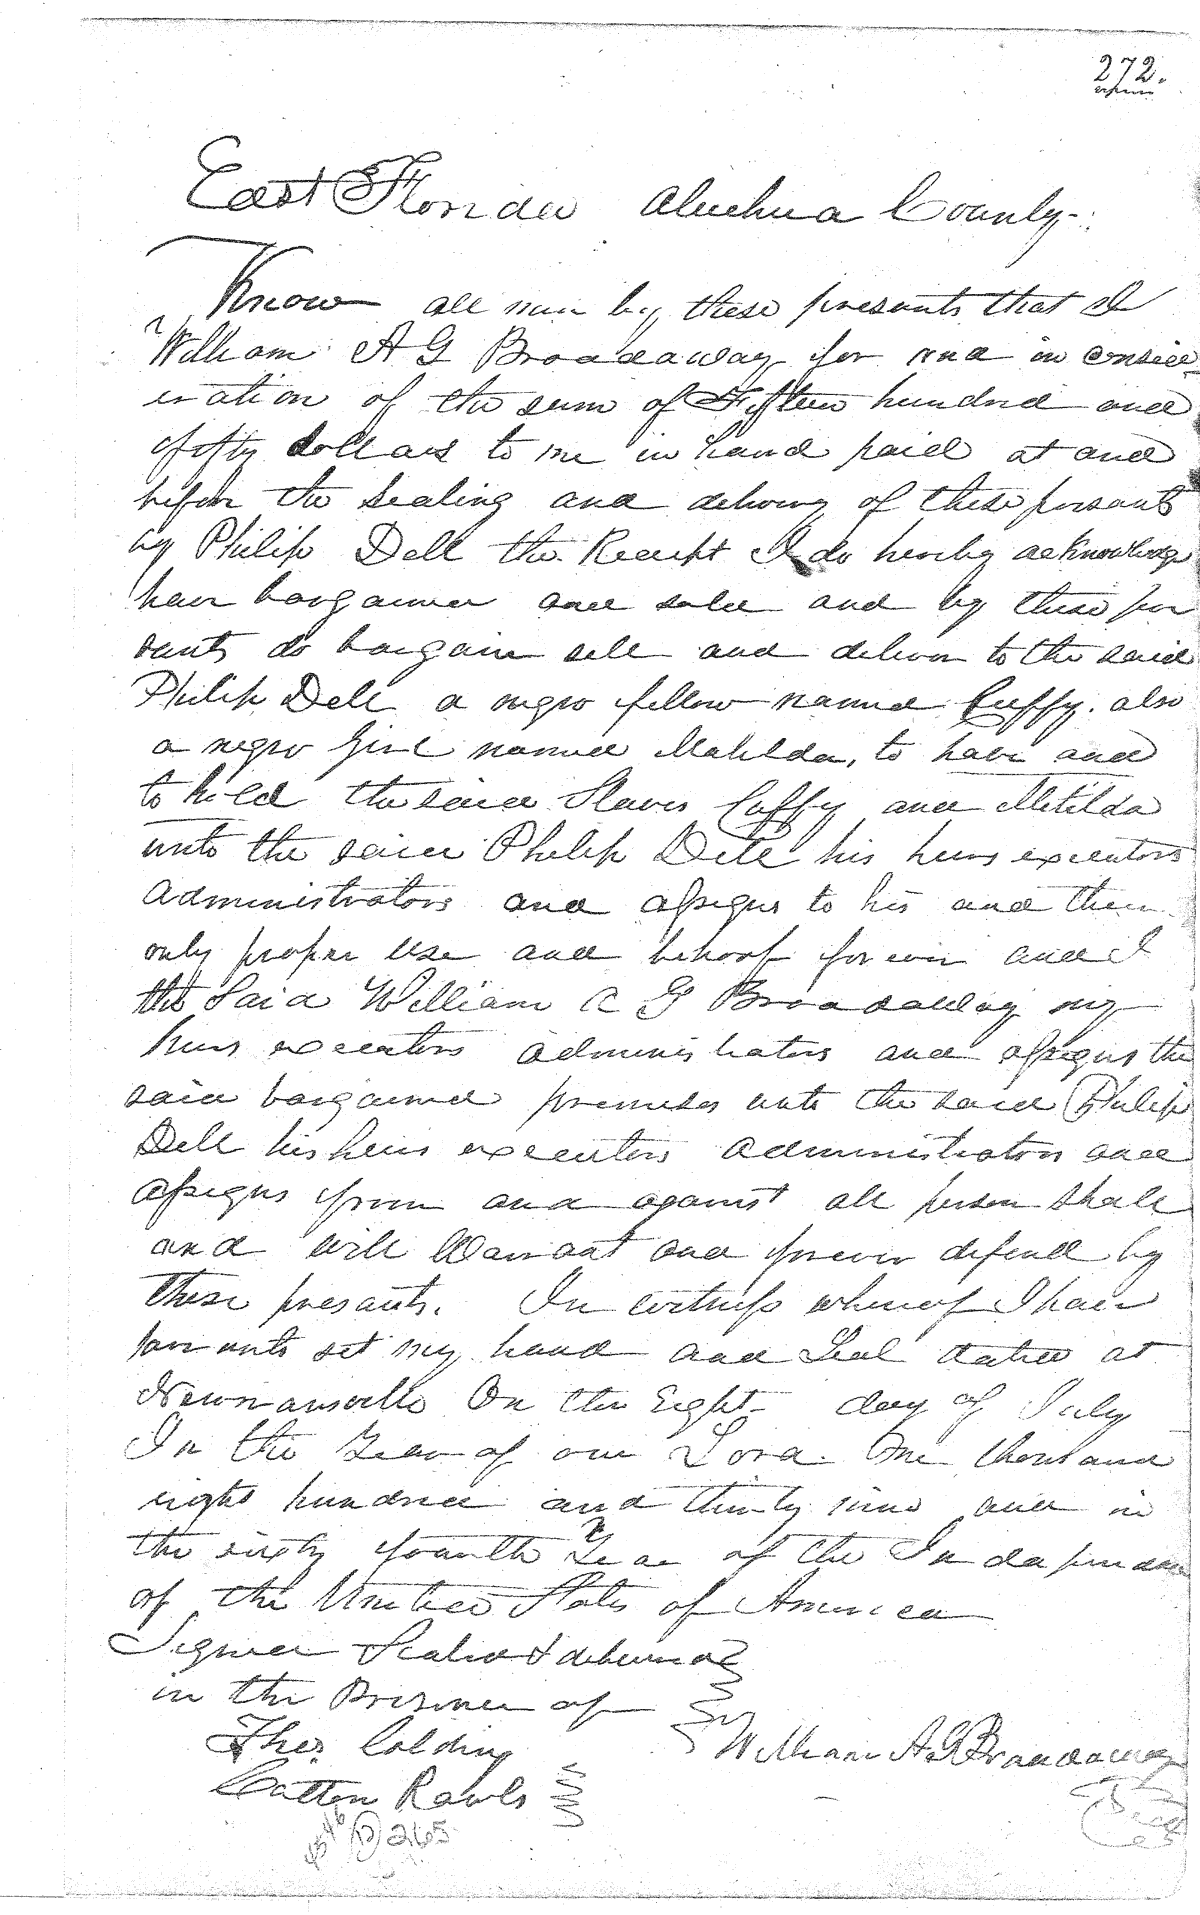 272.
East Florida Aluchua County
Know all men by these presents that I
William A G Broadaway for and in consid-
eration of the sum of Fifteen hundred and
fifty dollars to me in hand paid at and
before the sealing and delivery of these presants
by Philip Dell the Receipt I do hereby acknowledge
have bargained and sold and by these pre
sants do bargain sell and deliver to the said
Philip Dell a negro fellow named Cuffy. also
a negro Girl named Matilda, to have and
to hold the said Slaves Cuffy and Metilda
unto the said Philip Dell his heirs executors
administrators and assigns to his and their
only proper use and behoof forever and I
the Said William A G Broadaway my
heirs executors administrators and assigns the
said bargained premises unto the said Philip
Dell his heirs executors administrators and
assigns from and against all person shall
and will Warrant and forever defend by
these presants. In witness whereof I have
hereunto set my hand and Seal dated at
Newnansville On the Eight day of July
In the Year of our Lord One thousand
eight hundred and thirty nine and in
the sixty fourth Year of the Indapendance
of the United States of America
Signed Sealed & delivered
in the Presence of
Thos. Colding William A G Broadaway
Cotton Rawls Seal
265